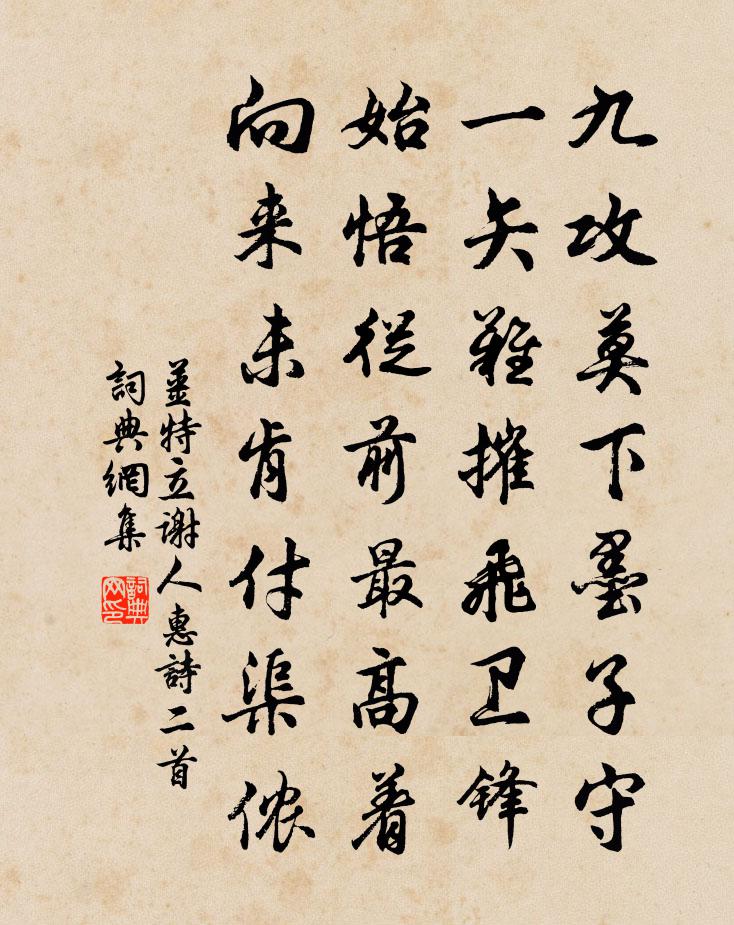 九攻莫下墨子守
一矢難摧飛卫锋
始悟從前最高着
向来未肯付渠侬
姜特立谢人惠詩二首
詞典網集
詞典網印